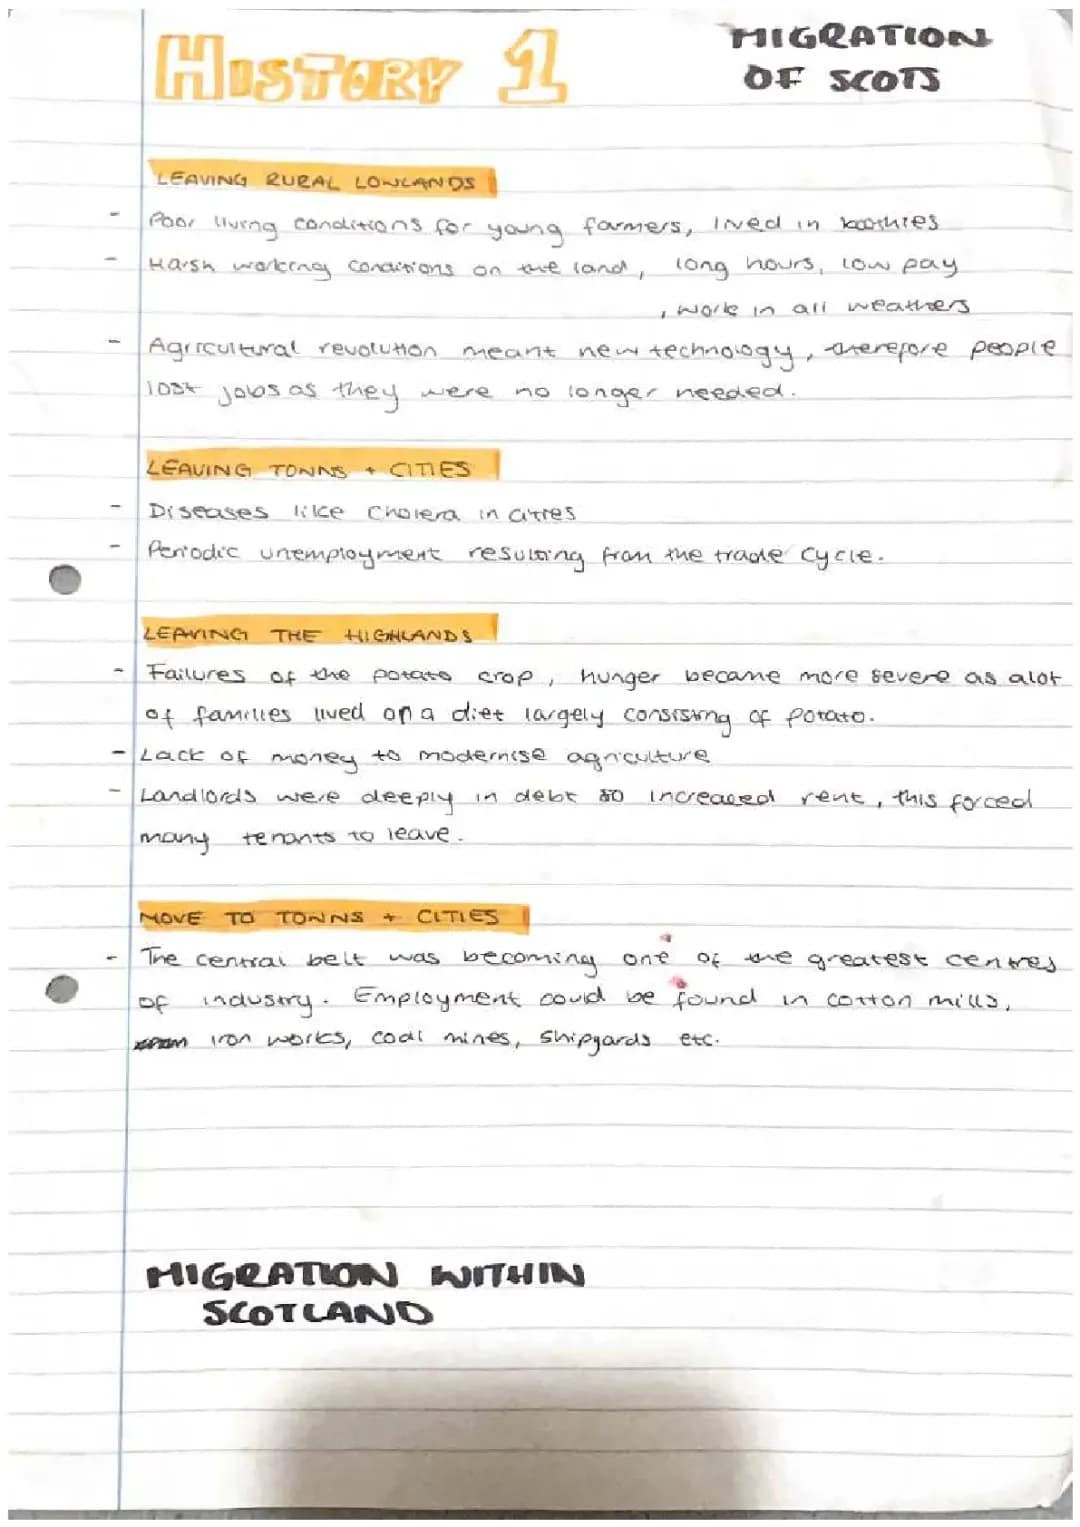 HISTORY 1
MIGRATION
OF SCOTS
LEAVING RURAL LOWLANDS
- Poor living conditions for young farmers, lived in boothies
- Harsh working conditions on the land, long hours, low pay
, work in all weathers
- Agricultural revolution meant new technology, therefore people
lost jobs as they were no longer needed.
LEAVING TOWNS + CITIES
- Diseases like Cholera in cities
- Periodic unemployment resulting from the trade cycle.
LEAVING THE HIGHLANDS
- Failures of the potato crop, hunger became more severe as alot
of families lived on a diet largely consisting of potato.
- Lack of money to modernise agriculture
- Landlords were deeply in debt so increased rent, this forced
many tenants to leave.
MOVE TO TOWNS + CITIES
- The central belt was becoming one of the greatest centres
of industry. Employment could be found in cotton mills,
iron works, coal mines, shipyards etc.
MIGRATION WITHIN
SCOTLAND